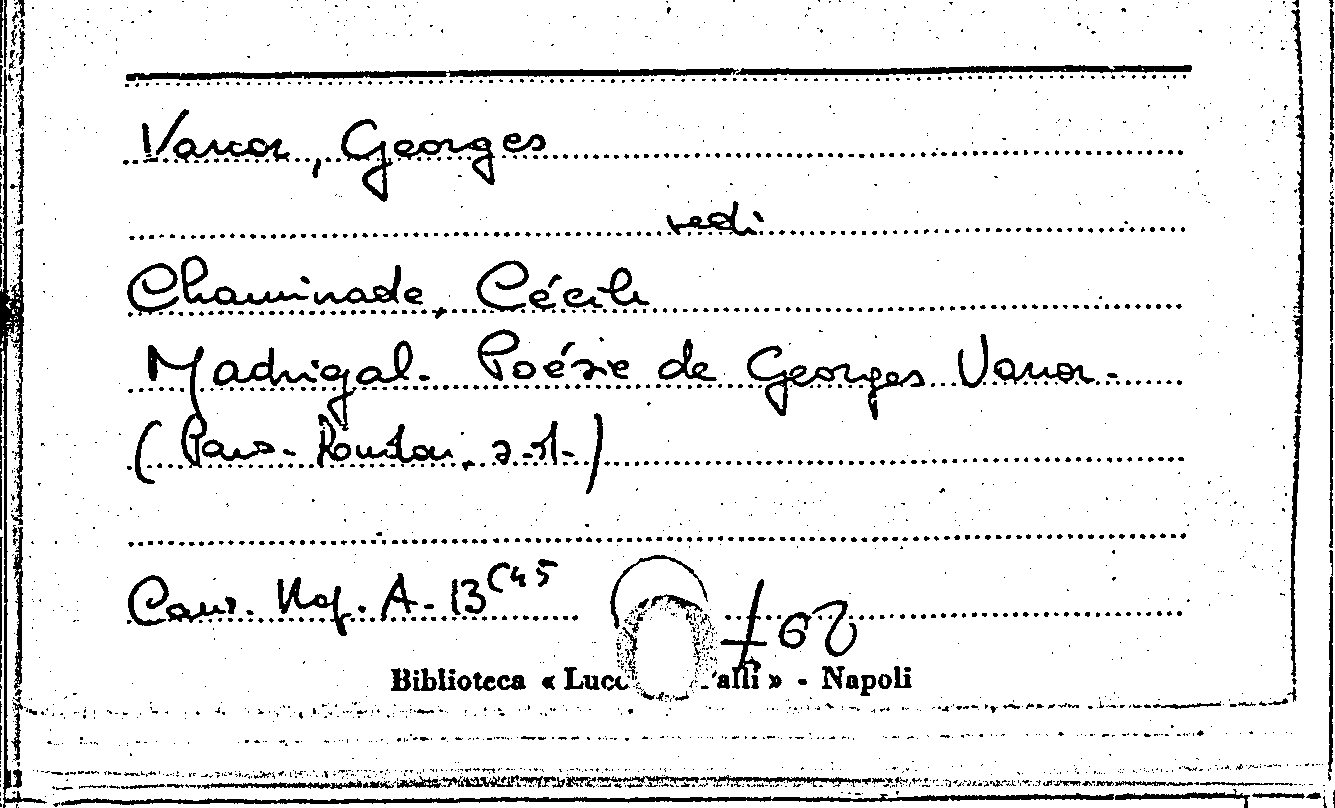 Vanor, Georges
vedi
Chaminade, Cécile
Madrigal. Poésie de Georges Vanor.
(Paris. s.d.)
Canz. Nap. A. 13 (45
Biblioteca « Lucc alli » - Napoli